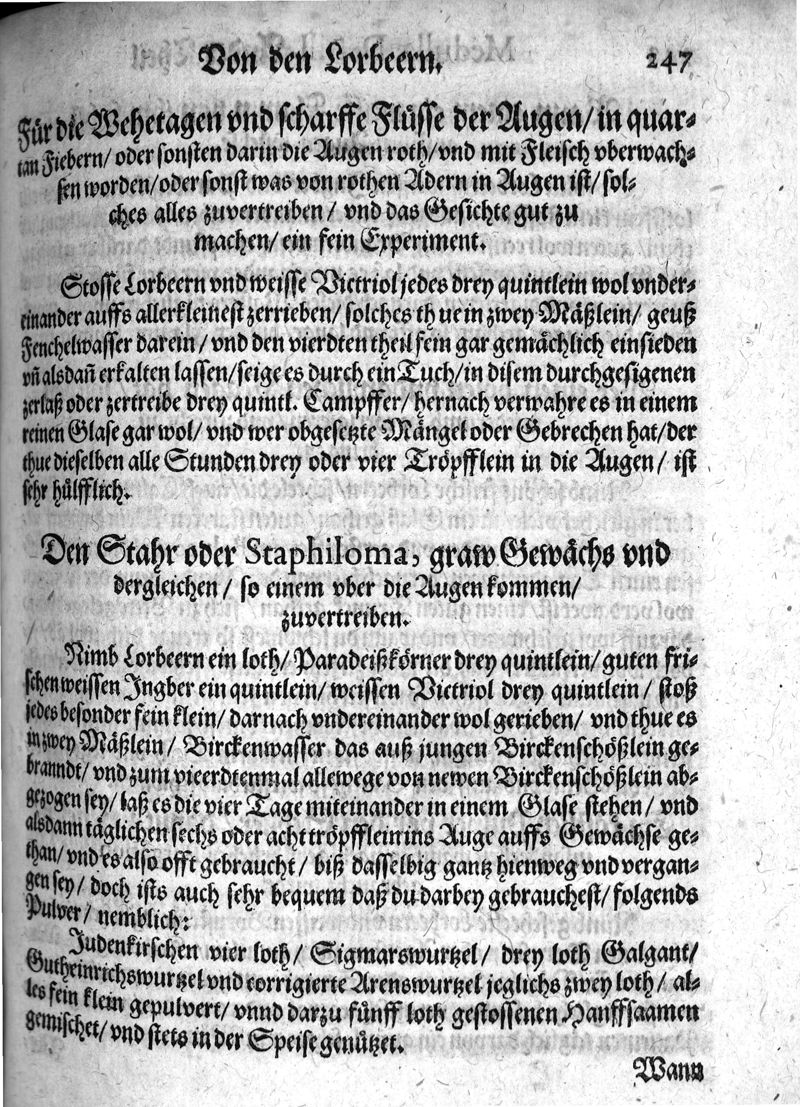 Von den Lorbeern. 247
Für die Wehetagen vnd scharffe Flüsse der Augen/ in quar-
tan Fiebern/ oder sonsten darin die Augen roth/ vnd mit Fleisch vberwach-
sen worden/ oder sonst was von rothen Adern in Augen ist/ sol-
ches alles zuvertreiben/ vnd das Gesichte gut zu
machen/ ein fein Experiment.
Stosse Lorbeern vnd weisse Victriol jedes drey quintlein wol vnder-
einander auffs allerkleinest zerrieben/ solches thue in zwey Mäßlein/ geuß
Fenchelwasser darein/ vnd den vierdten theil fein gar gemächlich einsieden
vñ alsdañ erkalten lassen/ seige es durch ein Tuch/ in disem durchgesigenen
zerlaß oder zertreibe drey quintl. Campffer/ hernach verwahre es in einem
reinen Glase gar wol/ vnd wer obgesetzte Mängel oder Gebrechen hat/ der
thue dieselben alle Stunden drey oder vier Tröpfflein in die Augen/ ist
sehr hülfflich.
Den Stahr oder Staphiloma, graw Gewächs vnd
dergleichen/ so einem vber die Augen kommen/
zuvertreiben.
Nimb Lorbeern ein loth/ Paradeißkörner drey quintlein/ guten fri-
schen weissen Ingber ein quintlein/ weissen Victriol drey quintlein/ stoß
jedes besonder fein klein/ darnach vndereinander wol gerieben/ vnd thue es
in zwey Mäßlein/ Birckenwasser das auß jungen Birckenschößlein ge-
branndt/ vnd zum vieerdtenmal allewege von newen Birckenschößlein ab-
gezogen sey/ laß es die vier Tage miteinander in einem Glase stehen/ vnd
alsdann täglichen sechs oder acht tröpfflein ins Auge auffs Gewächse ge-
than/ vnd es also offt gebraucht/ biß dasselbig gantz hienweg vnd vergan-
gen sey/ doch ists auch sehr bequem daß du darbey gebrauchest/ folgends
Pulver/ nemblich:
Judenkirschen vier loth/ Sigmarswurtzel/ drey loth Galgant/
Gutheinrichswurtzel vnd corrigierte Arenswurtzel jeglichs zwey loth/ al-
les fein klein gepulvert/ vnnd darzu fünff loth gestossenen Hanffsaamen
gemischet/ vnd stets in der Speise genützet.
Wann